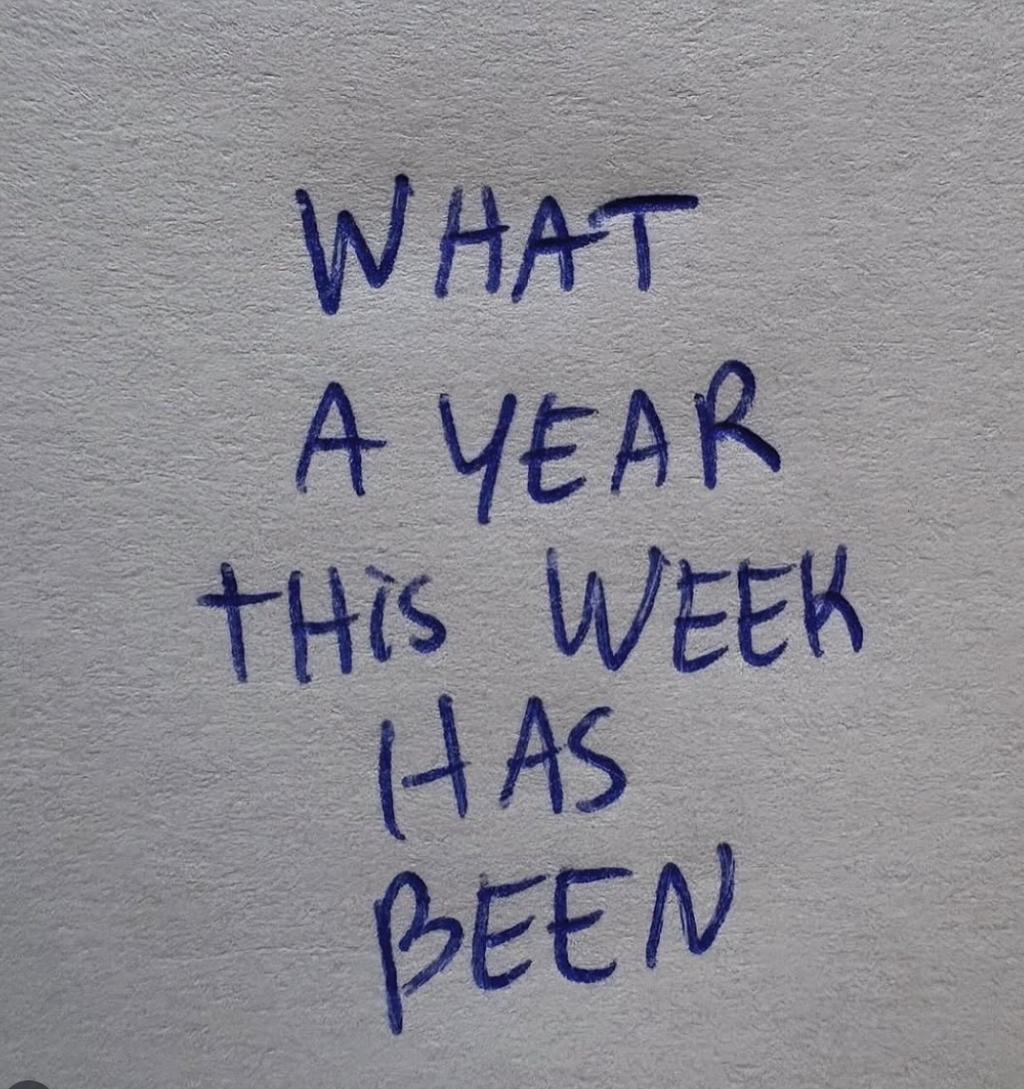 WHAT
A YEAR
THiS WEEK
HAS
BEEN